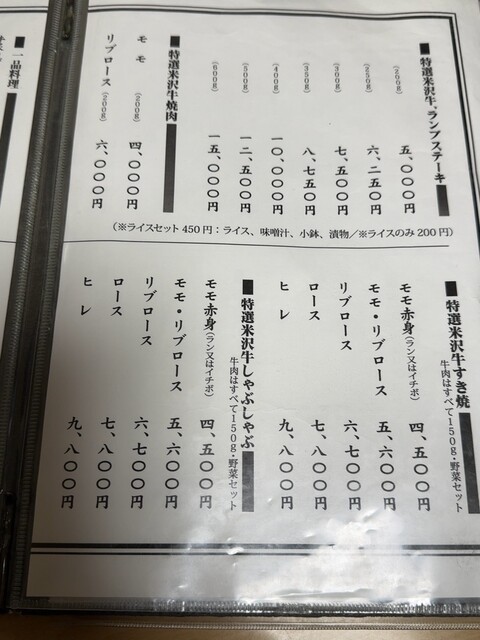 ■特選米沢牛・ランプステーキ
(200g) 五、〇〇〇円
(250g) 六、二五〇円
(300g) 七、五〇〇円
(350g) 八、七五〇円
(400g) 一〇、〇〇〇円
(500g) 一二、五〇〇円
(600g) 一五、〇〇〇円
■特選米沢牛焼肉
モモ(200g) 四、〇〇〇円
リブロース(200g) 六、〇〇〇円
(※ライスセット 450円：ライス、味噌汁、小鉢、漬物／※ライスのみ 200円)
■特選米沢牛すき焼
牛肉はすべて150g・野菜セット
モモ赤身(ラン又はイチボ) 四、五〇〇円
モモ・リブロース 五、六〇〇円
リブロース 六、七〇〇円
ロース 七、八〇〇円
ヒレ 九、八〇〇円
■特選米沢牛しゃぶしゃぶ
牛肉はすべて150g・野菜セット
モモ赤身(ラン又はイチボ) 四、五〇〇円
モモ・リブロース 五、六〇〇円
リブロース 六、七〇〇円
ロース 七、八〇〇円
ヒレ 九、八〇〇円
■一品料理